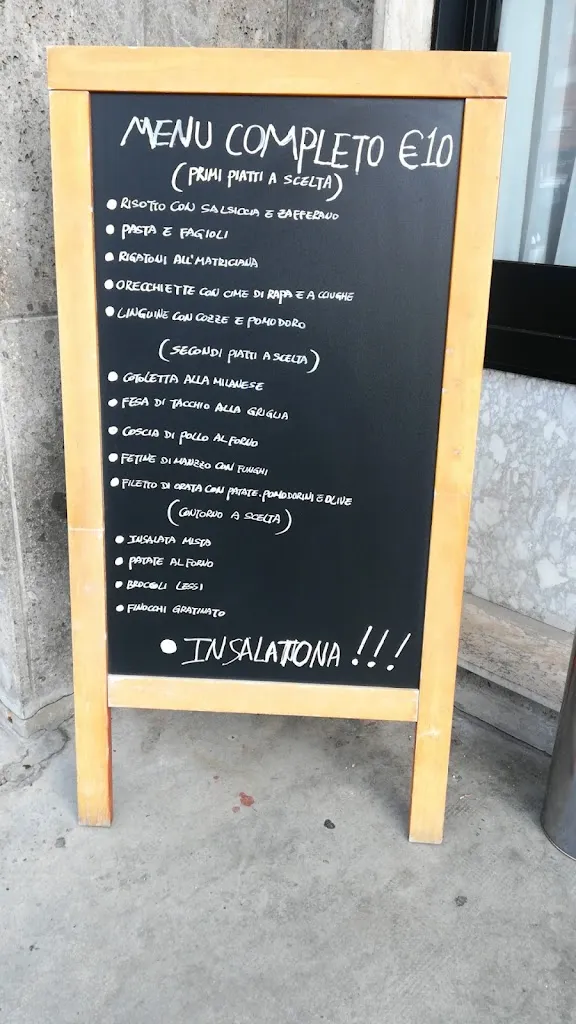 MENU COMPLETO €10
(PRIMI PIATTI A SCELTA)
• RISOTTO CON SALSICCIA E ZAFFERANO
• PASTA E FAGIOLI
• RIGATONI ALL'MATRICIANA
• ORECCHIETTE CON CIME DI RAPA E ACCIUGHE
• LINGUINE CON COZZE E POMODORO
(SECONDI PIATTI A SCELTA)
• COTOLETTA ALLA MILANESE
• FESA DI TACCHIO ALLA GRIGLIA
• COSCIA DI POLLO AL FORNO
• FETINE DI MANZO CON FUNGHI
• FILETTO DI ORATA CON PATATE. POMODORINI E OLIVE
(CONTORNO A SCELTA)
• INSALATA MISTA
• PATATE AL FORNO
• BROCOLI LESSI
• FINOCCHI GRATINATO
• INSALATONA !!!